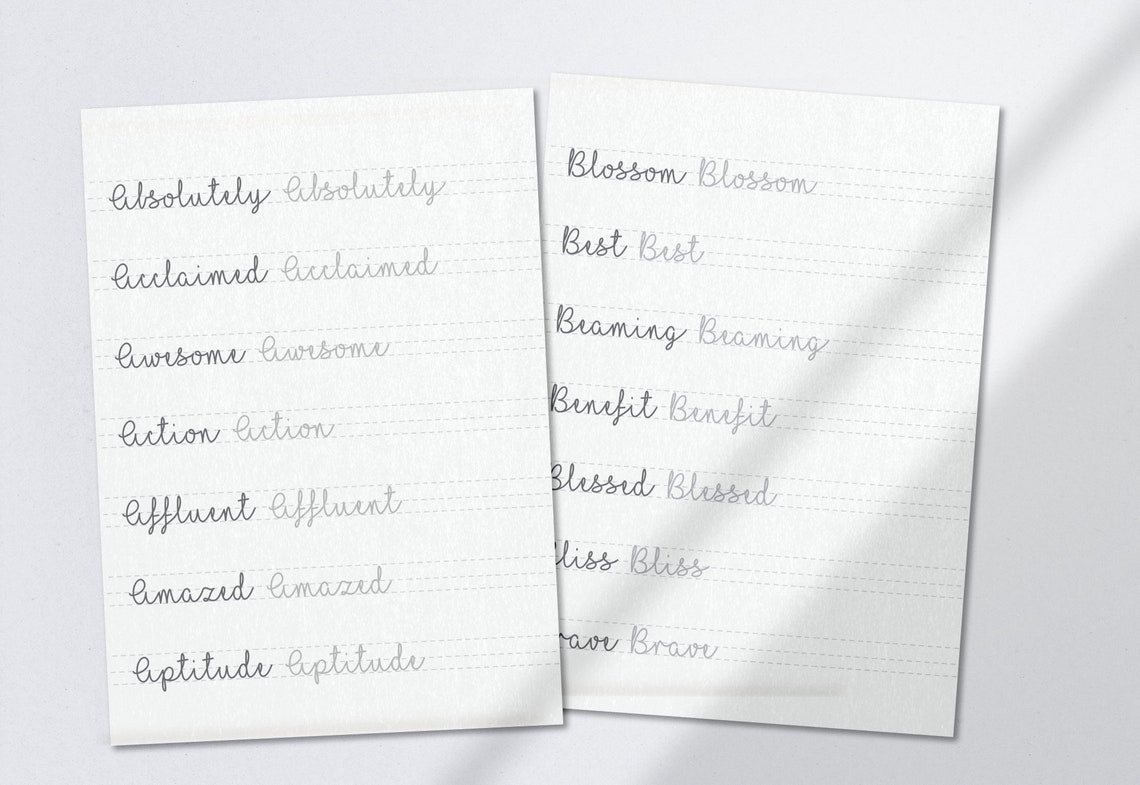 Absolutely Absolutely
Acclaimed Acclaimed
Awesome Awesome
Action Action
Affluent Affluent
Amazed Amazed
Aptitude Aptitude
Blossom Blossom
Best Best
Beaming Beaming
Benefit Benefit
Blessed Blessed
liss Bliss
rave Brave